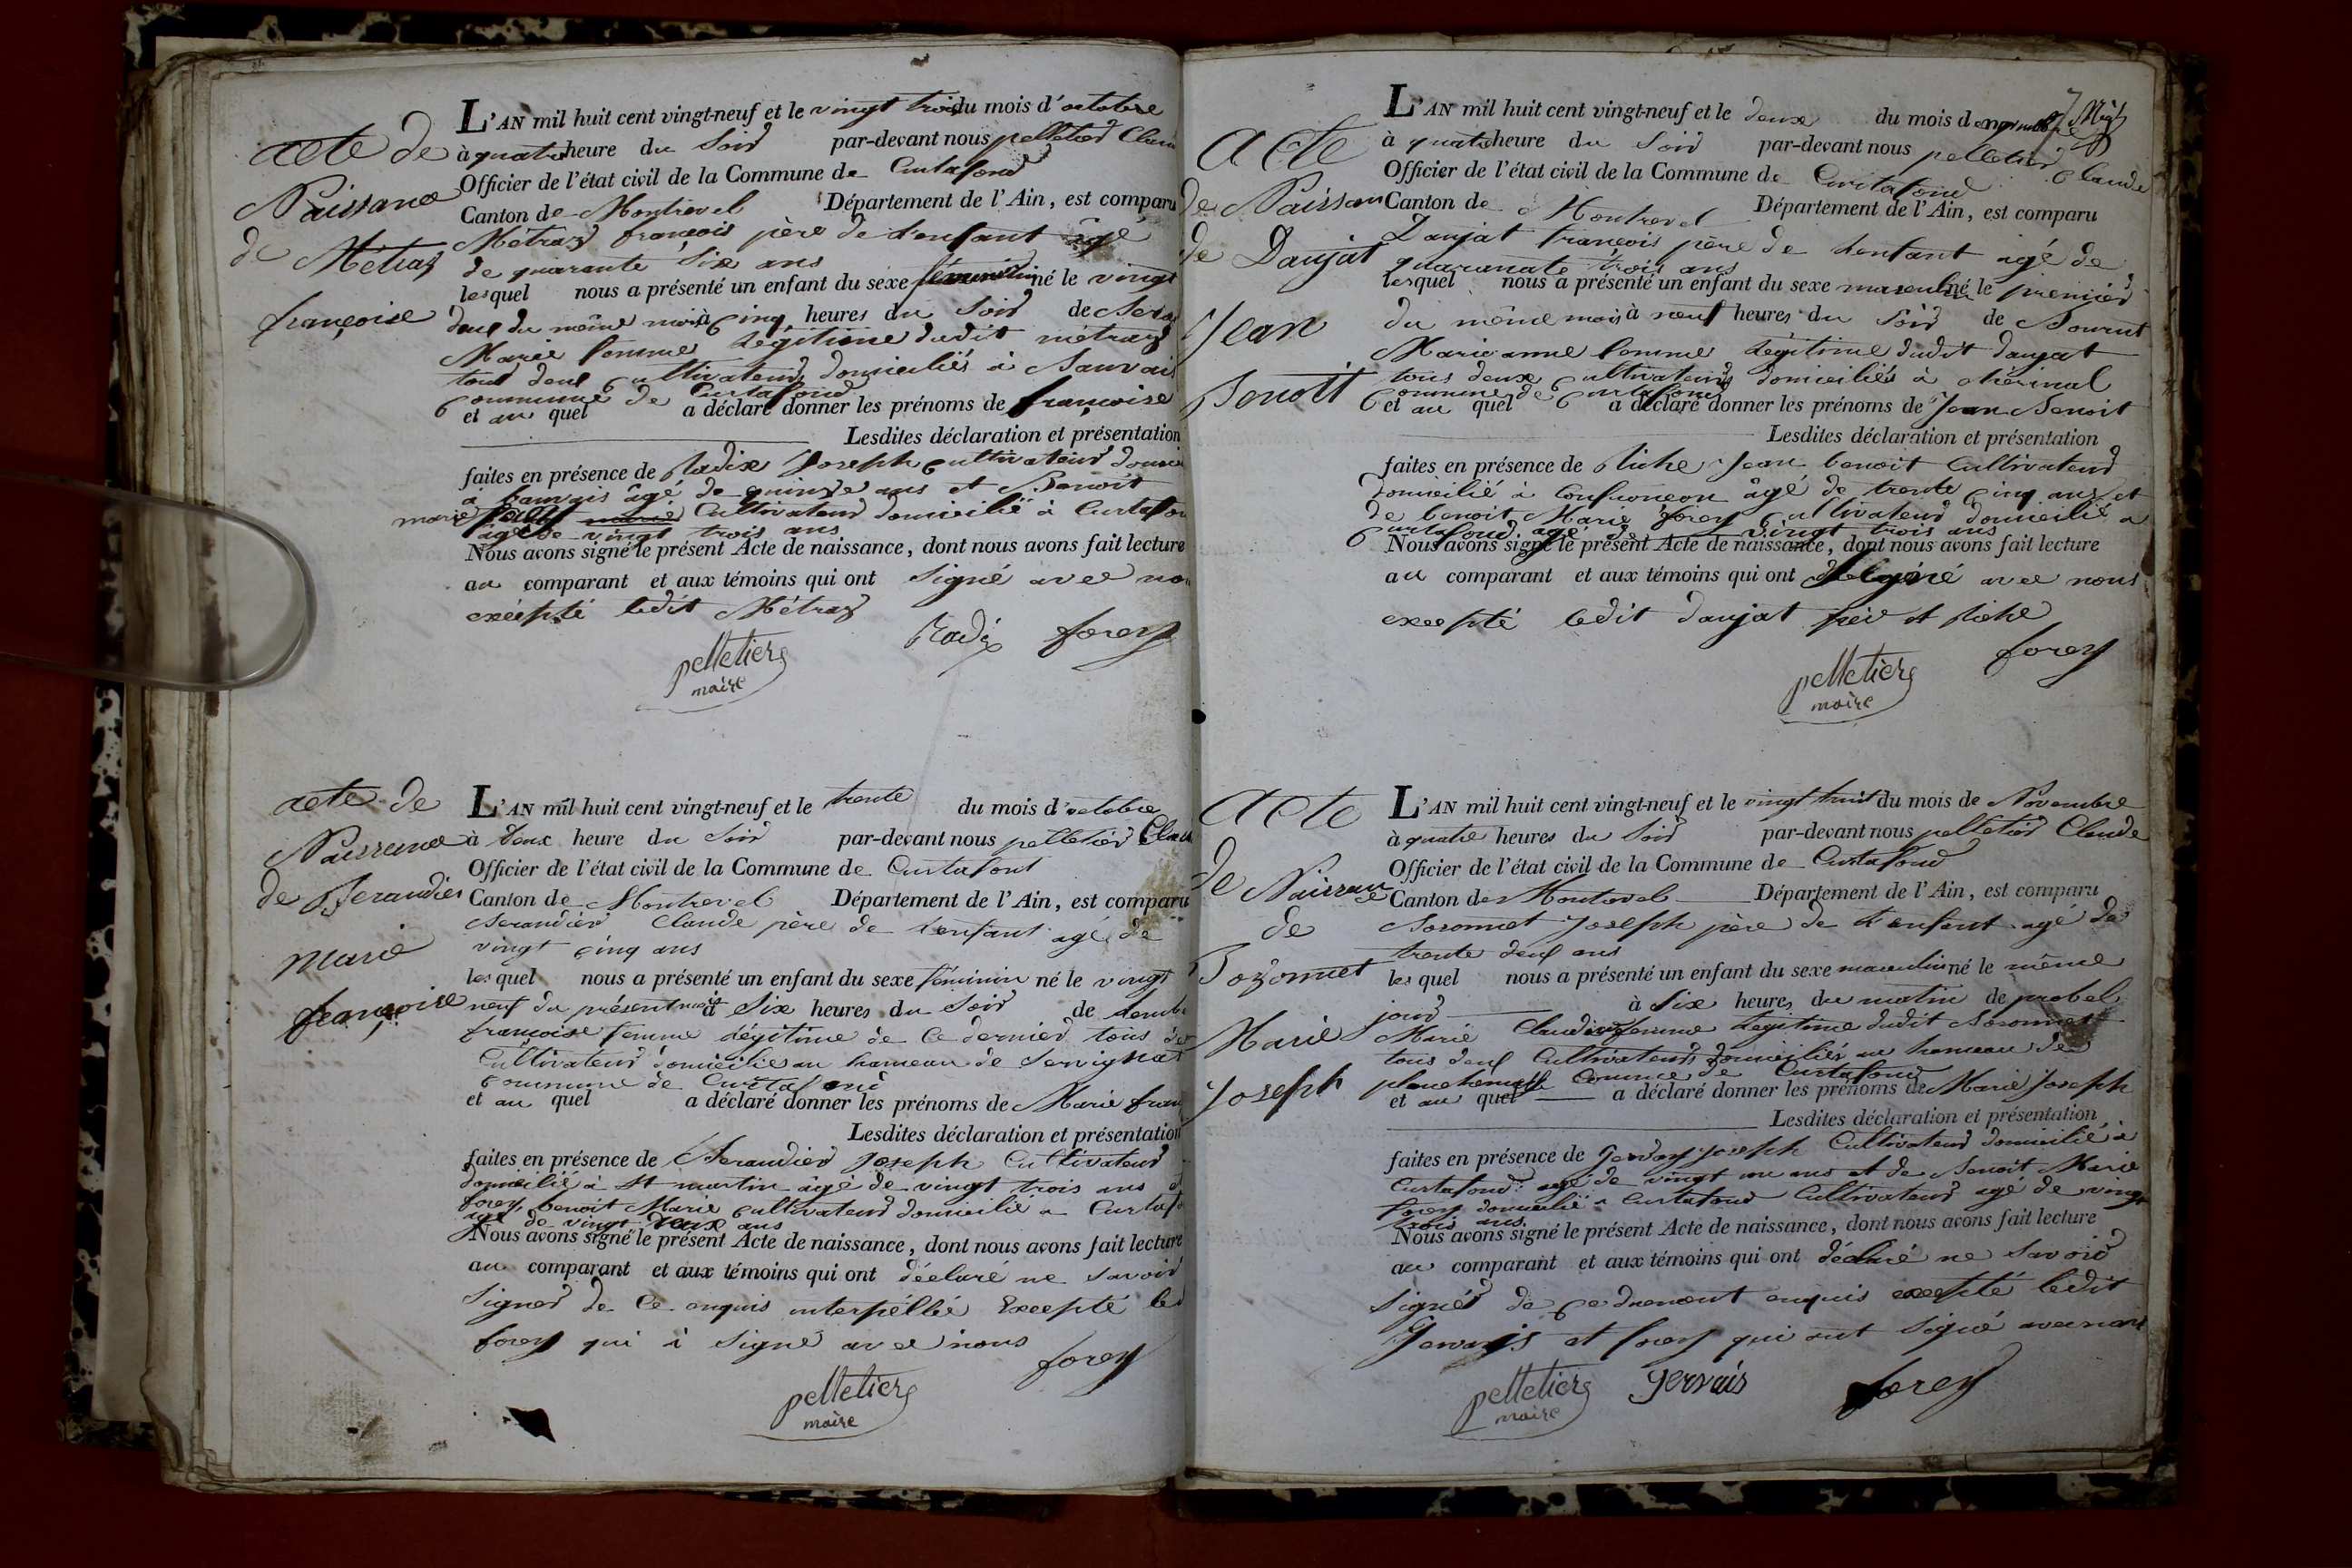 acte de
Naissance
de Métraz
françoise
L'AN mil huit cent vingt-neuf et le vingt trois du mois d'octobre
à quatre heure du Soir par-devant nous pelletier Clau
Officier de l'état civil de la Commune de Curtafond
Canton de Montrevel Département de l'Ain, est comparu
Métraz françois père de l'enfant âgé
de quarante Six ans
lesquel nous a présenté un enfant du sexe féminin né le vingt
deux du même mois à cinq heures du Soir de
Marie femme légitime dudit métraz
tous deux cultivateurs domiciliés à
commune de Curtafond
et au quel a déclaré donner les prénoms de françoise
Lesdites déclaration et présentation
faites en présence de Radix Joseph cultivateur domici
à âgé de quinze ans et Benoit
marie forey Cultivateur domicilié à Curtafon
âgé de vingt trois ans
Nous avons signé le présent Acte de naissance, dont nous avons fait lecture
au comparant et aux témoins qui ont Signé avec nou
excépté ledit Métraz
Radix forey
pelletier
maire
acte de
Naissance
de Berandier
marie
françoise
L'AN mil huit cent vingt-neuf et le trente du mois d'octobre
à deux heure du Soir par-devant nous pelletier Clau
Officier de l'état civil de la Commune de Curtafont
Canton de Montrevel Département de l'Ain, est comparu
Berandier Claude père de l'enfant agé de
vingt cinq ans
lesquel nous a présenté un enfant du sexe féminin né le vingt
neuf du présent mois à Six heures du Soir de
françoise femme légitime de Ce dernier tous de
Cultivateur domicilie au hameau de Servignat
commune de Curtafond
et au quel a déclaré donner les prénoms de Marie fran
Lesdites déclaration et présentation
faites en présence de Berandier Joseph Cultivateur
domicilié à St martin âgé de vingt trois ans et
forey benoit Marie cultivateur domicilié a Curtafo
agé de vingt deux ans
Nous avons signé le présent Acte de naissance, dont nous avons fait lecture
au comparant et aux témoins qui ont déclaré ne savoir
Signer de Ce enquis interpéllé Excepté led
forey qui à Signé avec nous
forey
pelletier
maire
7
Acte
de Naissan
de Daujat
Jean
Benoit
L'AN mil huit cent vingt-neuf et le deux du mois de novembre
à quatre heure du Soir par-devant nous pelletier Claude
Officier de l'état civil de la Commune de Curtafond
Canton de Montrevel Département de l'Ain, est comparu
Daujat françois père de lenfant agé de
quaranate trois ans
lesquel nous a présenté un enfant du sexe masculin né le premier
du même mois à neuf heures du Soir de
Marie anne femme légitime dudit daujat
tous deux cultivateurs domiciliés à
commune de Curtafond
et au quel a déclaré donner les prénoms de Jean Benoit
Lesdites déclaration et présentation
faites en présence de Piche Jean benoit Cultivateur
domicilié à Confrançon âgé de trente cinq ans et
de benoit Marie forey cultivateur domicilié a
Curtafond agé de vingt trois ans
Nous avons signé le présent Acte de naissance, dont nous avons fait lecture
au comparant et aux témoins qui ont Signé avec nous
excepté ledit daujat père et piche
forey
pelletier
maire
Acte
de Naissance
de
Bozonnet
Marie
Joseph
L'AN mil huit cent vingt-neuf et le vingt huit du mois de Novembre
à quatre heures du Soir par-devant nous pelletier Claude
Officier de l'état civil de la Commune de Curtafond
Canton de Montrevel Département de l'Ain, est comparu
Bosonnet Joseph père de l'enfant agé de
trente deux ans
lesquel nous a présenté un enfant du sexe masculin né le même
jour à Six heures du matin de probel
Marie Claudine femme légitime dudit Bosonnet
tous deux Cultivateurs domiciliés au hameau de
Commune de Curtafond
et au quel a déclaré donner les prénoms de Marie Joseph
Lesdites déclaration et présentation
faites en présence de Gervay Joseph Cultivateur domicilié à
Curtafond agé de vingt un ans et de Benoit Marie
forey domicilié a Curtafond Cultivateur agé de vingt
trois ans
Nous avons signé le présent Acte de naissance, dont nous avons fait lecture
au comparant et aux témoins qui ont déclaré ne savoir
Signer de ce enquis excepté ledit
Gervais et forey qui ont Signé avec nous
pelletier Gervais forey
maire